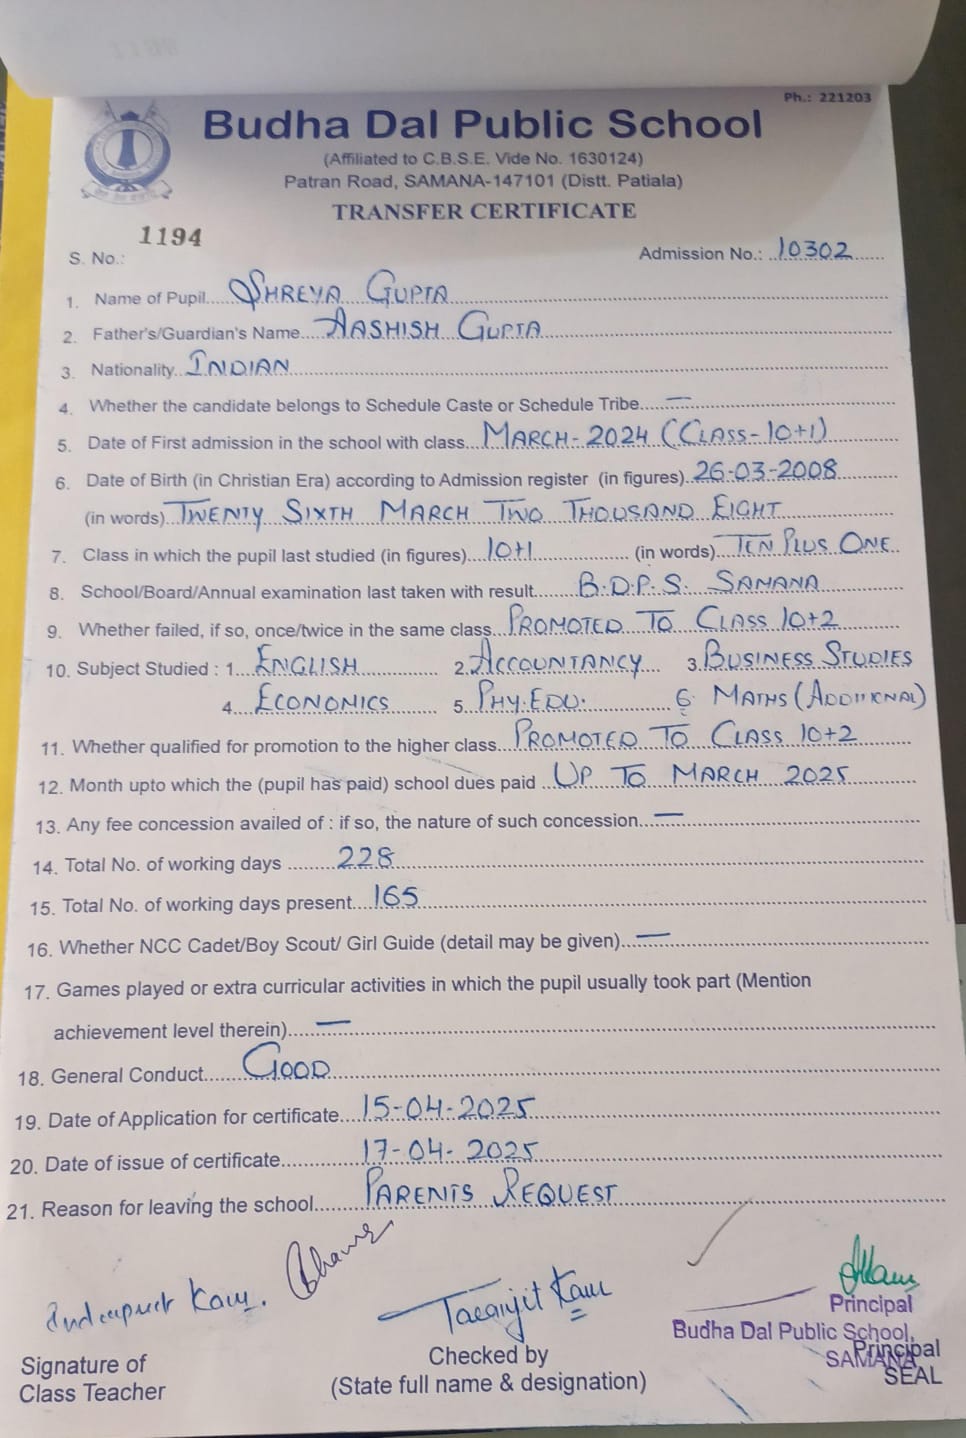 Ph.: 221203
Budha Dal Public School
(Affiliated to C.B.S.E. Vide No. 1630124)
Patran Road, SAMANA-147101 (Distt. Patiala)
TRANSFER CERTIFICATE
S. No.: 1194 Admission No.: 10302
1. Name of Pupil SHREYA GUPTA
2. Father's/Guardian's Name AASHISH GUPTA
3. Nationality INDIAN
4. Whether the candidate belongs to Schedule Caste or Schedule Tribe —
5. Date of First admission in the school with class MARCH-2024 (CLASS-10+1)
6. Date of Birth (in Christian Era) according to Admission register (in figures) 26-03-2008
(in words) TWENTY SIXTH MARCH TWO THOUSAND EIGHT
7. Class in which the pupil last studied (in figures) 10+1 (in words) TEN PLUS ONE
8. School/Board/Annual examination last taken with result B.D.P.S. SAMANA
9. Whether failed, if so, once/twice in the same class PROMOTED TO CLASS 10+2
10. Subject Studied : 1. ENGLISH 2. ACCOUNTANCY 3. BUSINESS STUDIES
4. ECONOMICS 5. PHY.EDU. 6 MATHS (ADDITIONAL)
11. Whether qualified for promotion to the higher class PROMOTED TO CLASS 10+2
12. Month upto which the (pupil has paid) school dues paid UP TO MARCH 2025
13. Any fee concession availed of : if so, the nature of such concession —
14. Total No. of working days 228
15. Total No. of working days present 165
16. Whether NCC Cadet/Boy Scout/ Girl Guide (detail may be given) —
17. Games played or extra curricular activities in which the pupil usually took part (Mention
achievement level therein) —
18. General Conduct GOOD
19. Date of Application for certificate 15-04-2025
20. Date of issue of certificate 17-04-2025
21. Reason for leaving the school PARENTS REQUEST
Kaur. Kaur
Principal
Budha Dal Public School,
SAMANA
Signature of
Class Teacher
Checked by
(State full name & designation)
Principal
SEAL